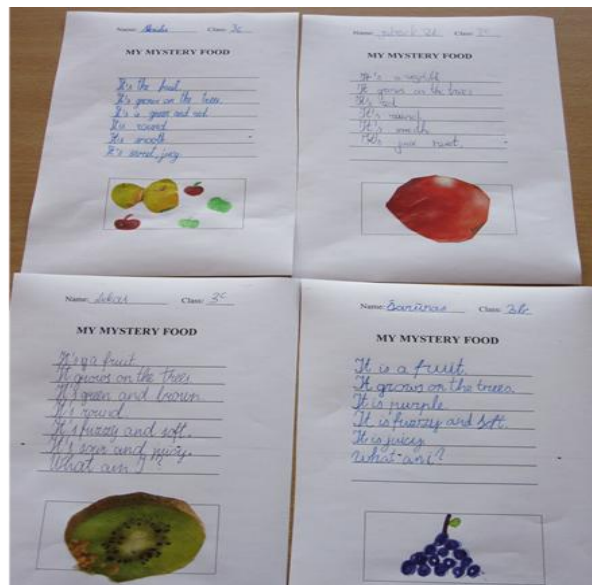 Name: Class: 3c
MY MYSTERY FOOD
It's the fruit.
It's grows on the trees.
It's is green and red
It's round
It's smooth
It's sweet, juicy
Name: Class:
MY MYSTERY FOOD
It's a
It grows on the trees
It's red
It's round
It's
It's
Name: Lukas Class: 3c
MY MYSTERY FOOD
It's a fruit.
It grows on the trees.
It's green and brown.
It's round.
It's fuzzy and soft.
It's sour and juicy.
What am I?
Name: Šarūnas Class: 3b
MY MYSTERY FOOD
It is a fruit.
It grows on the trees.
It is purple.
It is fuzzy and soft.
It is juicy.
What am i?